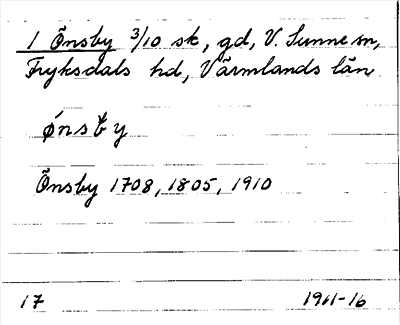 1 Õnsby 3/10 sk, gd, V. Sunne sn,
Fryksdals hd, Värmlands län
ǿnsby
Õnsby 1708, 1805, 1910
17 1911-16